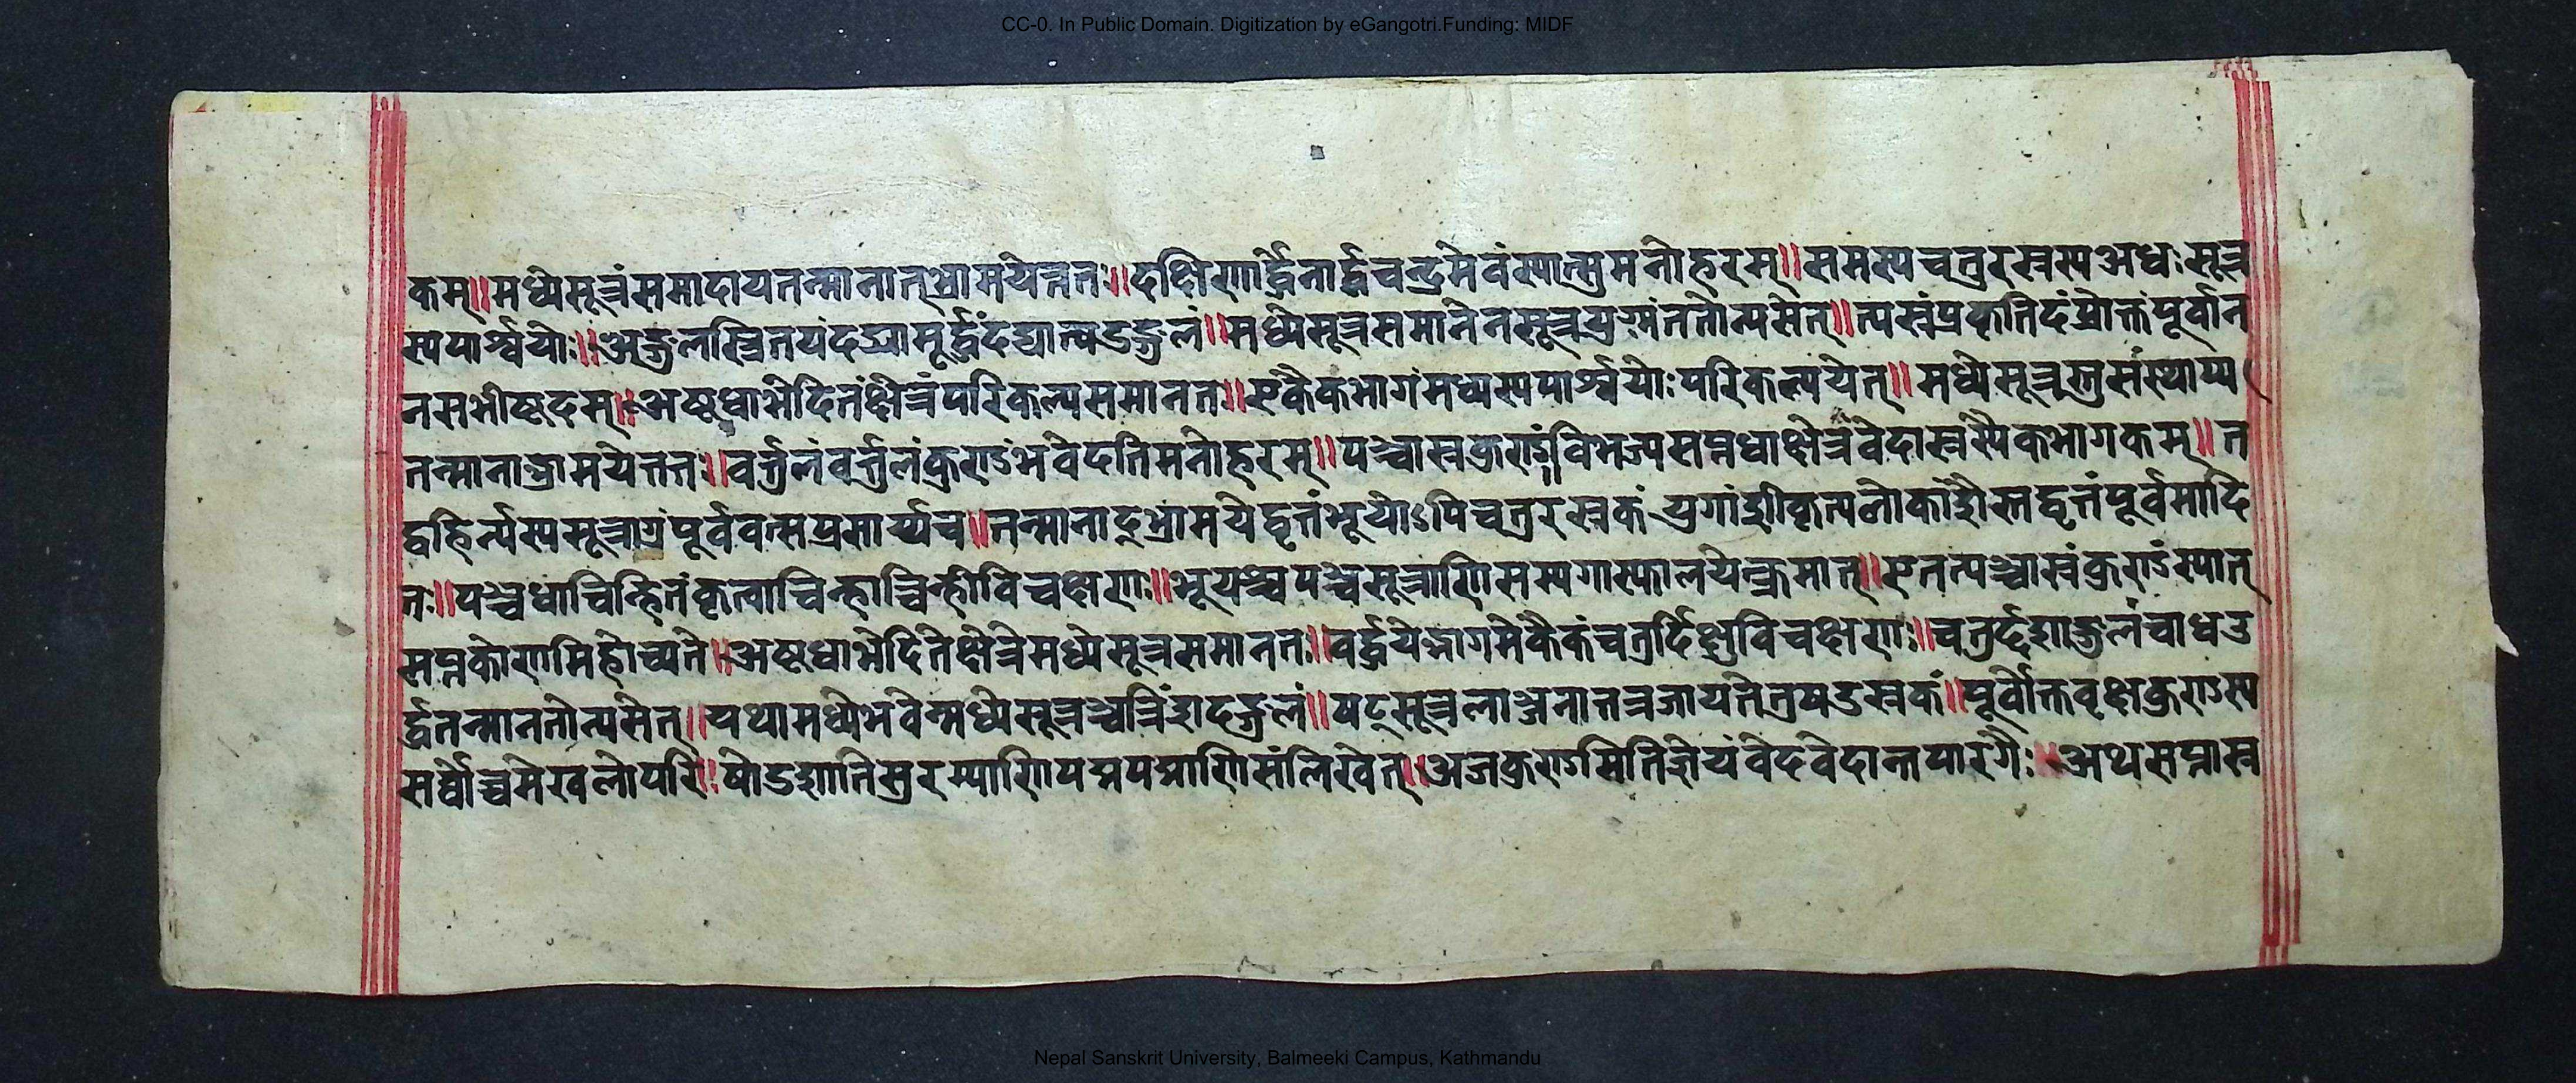 CC-0. In Public Domain. Digitization by eGangotri.Funding: MIDF
कम्॥मध्येसूत्रंसमादायतन्मानात्भ्रामयेत्ततः॥दक्षिणार्द्धेनार्द्धचन्द्रमेवंस्यात्सुमनोहरम्॥समस्यचतुरस्रस्यअधःसूत्र
स्यपार्श्वयोः॥अङ्गुलस्त्रितयंदद्यामूर्द्ध्वंदद्यात्षडङ्गुलं॥मध्येसूत्रसमानेनसूत्रयुग्मंततोन्यसेत्॥त्र्यस्रंप्रकृतिदंप्रोक्तंपूर्वान
नसभीष्टदम्॥अष्टधाभेदितंक्षेत्रंपरिकल्प्यसमानतः॥एकैकभागंमध्यस्यपार्श्वयोःपरिकल्पयेत्॥मध्येसूत्रन्तुसंस्थाप्य
तन्मानाद्भ्रामयेत्ततः॥वर्त्तुलंवर्त्तुलंकुण्डंभवेदतिमनोहरम्॥पञ्चास्रकुण्डं॥विभज्यसप्तधाक्षेत्रंवेदास्रस्यैकभागकम्॥त
द्वहिर्न्यस्यसूत्राग्रंपूर्ववत्सप्रसार्य्यच॥तन्मानाद्भ्रामयेद्वृत्तंभूयोऽपिचतुरस्रकंयुगांशीकृत्यलोकांशैस्तद्वृत्तंपूर्वमादि
तः॥पञ्चधाचिन्हितंकृत्वाचिन्हाच्चिन्हीविचक्षणः॥भूयश्चपञ्चसूत्राणिसम्यगास्फालयेत्क्रमात्॥एतत्पञ्चास्रंकुण्डंस्यात्
सप्तकोणमिहोच्यते॥अष्टधाभेदितेक्षेत्रेमध्येसूत्रसमानतः॥वर्द्धयेद्भागमेकैकंचतुर्दिक्षुविचक्षणः॥चतुर्दशाङ्गुलंचाधऊ
र्द्ध्वतन्मानतोन्यसेत्॥यथामध्येभवेन्मध्येसूत्रञ्चत्रिंशदङ्गुलं॥षट्सूत्रलाञ्छनात्तत्रजायतेत्रषडस्रकं॥पूर्वोक्तवृक्षकुण्डस्य
सर्वोच्चमेखलोपरि॥षोडशातिसुरम्याणिपद्मपत्राणिसंलिखेत्॥अजकुण्डमितिज्ञेयंवेदवेदान्तपारगैः॥अथसप्तास्र
Nepal Sanskrit University, Balmeeki Campus, Kathmandu